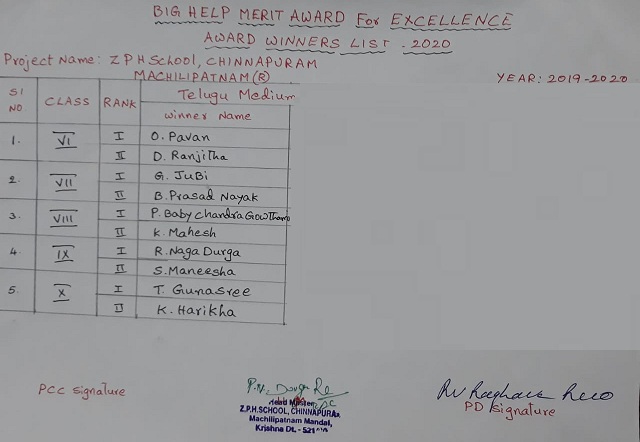 BIG HELP MERIT AWARD For EXCELLENCE
AWARD WINNERS LIST . 2020
Project Name: Z P H School, CHINNAPURAM
MACHILIPATNAM (R)
YEAR: 2019-2020
Sl NO CLASS RANK Telugu Medium
Winner Name
1. VI I O. Pavan
II D. Ranjitha
2. VII I G. JuBi
II B. Prasad Nayak
3. VIII I P. Baby Chandra Gowthami
II K. Mahesh
4 IX I R. Naga Durga
II S. Maneesha
5. X I T. Gunasree
II K. Harikha
PCC Signature
Head Master
Z.P.H.SCHOOL, CHINNAPURAM
Machilipatnam Mandal,
Krishna Dt. - 521
PD Signature